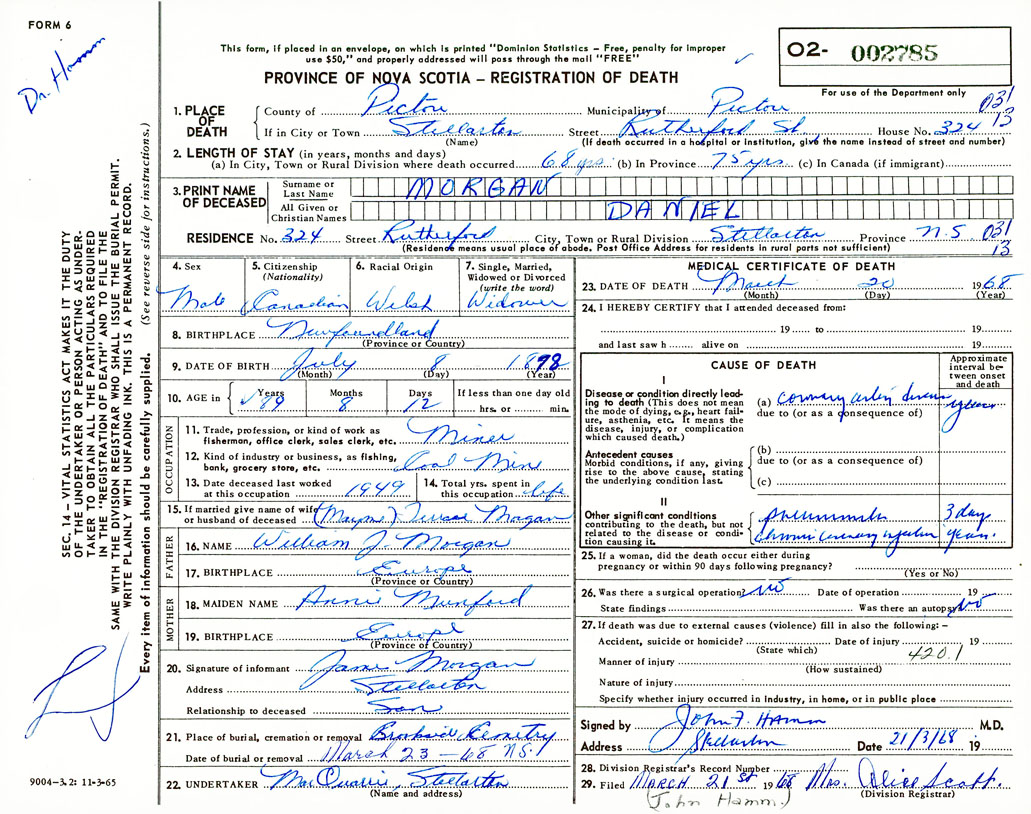 FORM 6
Dr. Hamm
This form, if placed in an envelope, on which is printed "Dominion Statistics – Free, penalty for improper
use $50," and properly addressed will pass through the mail "FREE"
PROVINCE OF NOVA SCOTIA – REGISTRATION OF DEATH
O2- 002785
For use of the Department only
031
13
1. PLACE OF DEATH
County of Pictou Municipality of Pictou
If in City or Town Stellarton Street Rutherford St. House No. 324
(Name) (If death occurred in a hospital or institution, give the name instead of street and number)
2. LENGTH OF STAY (in years, months and days)
(a) In City, Town or Rural Division where death occurred 68 yrs. (b) In Province 75 yrs (c) In Canada (if immigrant)
3. PRINT NAME OF DECEASED
Surname or Last Name MORGAN
All Given or Christian Names DANIEL
RESIDENCE No. 324 Street Rutherford City, Town or Rural Division Stellarton Province N.S. 031
13
(Residence means usual place of abode. Post Office Address for residents in rural parts not sufficient)
4. Sex Male
5. Citizenship (Nationality) Canadian
6. Racial Origin Welsh
7. Single, Married, Widowed or Divorced (write the word) Widower
8. BIRTHPLACE Newfoundland
(Province or Country)
9. DATE OF BIRTH July 8 1878
(Month) (Day) (Year)
10. AGE in Years 89 Months 8 Days 12 If less than one day old hrs. or min.
OCCUPATION
11. Trade, profession or kind of work as fisherman, office clerk, sales clerk, etc. Miner
12. Kind of industry or business, as fishing, bank, grocery store, etc. Coal Mine
13. Date deceased last worked at this occupation 1949
14. Total yrs. spent in this occupation life
15. If married give name of wife or husband of deceased Morgan
FATHER
16. NAME William J. Morgan
17. BIRTHPLACE Europe
(Province or Country)
MOTHER
18. MAIDEN NAME Annie Munford
19. BIRTHPLACE Europe
(Province or Country)
20. Signature of informant Morgan
Address Stellarton
Relationship to deceased Son
21. Place of burial, cremation or removal Cemetry
Date of burial or removal March 23 – 68 N.S.
22. UNDERTAKER MacQuarrie, Stellarton
(Name and address)
MEDICAL CERTIFICATE OF DEATH
23. DATE OF DEATH March 20 1968
(Month) (Day) (Year)
24. I HEREBY CERTIFY that I attended deceased from:
19 to 19
and last saw h alive on 19
CAUSE OF DEATH
Approximate interval between onset and death
I
Disease or condition directly leading to death (This does not mean the mode of dying, e.g., heart failure, asthenia, etc. It means the disease, injury, or complication which caused death.)
(a) coronary artery disease years
due to (or as a consequence of)
Antecedent causes
Morbid conditions, if any, giving rise to the above cause, stating the underlying condition last.
(b)
due to (or as a consequence of)
(c)
II
Other significant conditions contributing to the death, but not related to the disease or condition causing it.
pneumonia 3 day
chronic coronary years.
25. If a woman, did the death occur either during pregnancy or within 90 days following pregnancy?
(Yes or No)
26. Was there a surgical operation? No Date of operation 19
State findings Was there an autopsy No
27. If death was due to external causes (violence) fill in also the following: –
Accident, suicide or homicide? Date of injury 19
(State which)
420.1
Manner of injury
(How sustained)
Nature of injury
Specify whether injury occurred in industry, in home, or in public place
Signed by John F. Hamm M.D.
Address Stellarton Date 21/3/68 19
28. Division Registrar's Record Number
29. Filed MARCH 21st 1968 Mrs. Alice Scott.
(John Hamm.) (Division Registrar)
SEC. 14 – VITAL STATISTICS ACT MAKES IT THE DUTY
OF THE UNDERTAKER OR PERSON ACTING AS UNDER-
TAKER TO OBTAIN ALL THE PARTICULARS REQUIRED
IN THE "REGISTRATION OF DEATH" AND TO FILE THE
SAME WITH THE DIVISION REGISTRAR WHO SHALL ISSUE THE BURIAL PERMIT.
WRITE PLAINLY WITH UNFADING INK. THIS IS A PERMANENT RECORD.
Every item of information should be carefully supplied. (See reverse side for instructions.)
9004–3.2: 11-3-65